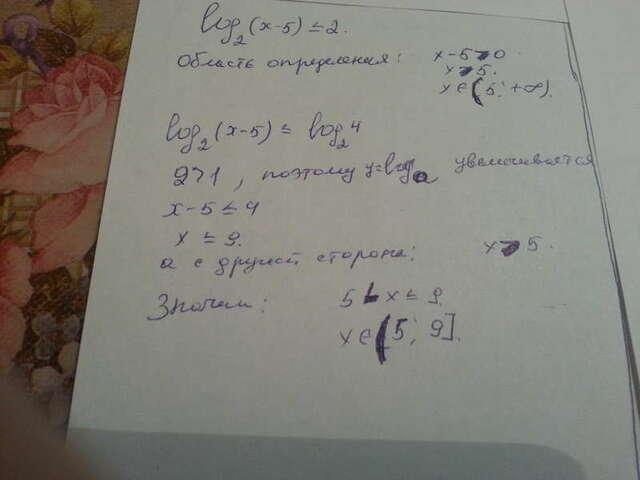 log₂(x-5) ≤ 2.
Область определения: x-5>0
x>5.
x∈(5; +∞).
log₂(x-5) ≤ log₂4
2>1, поэтому y=logₐ увеличивается
x-5≤4
x ≤ 9.
а с другой сторона: x>5.
Значит: 5<x≤9.
x∈(5; 9].